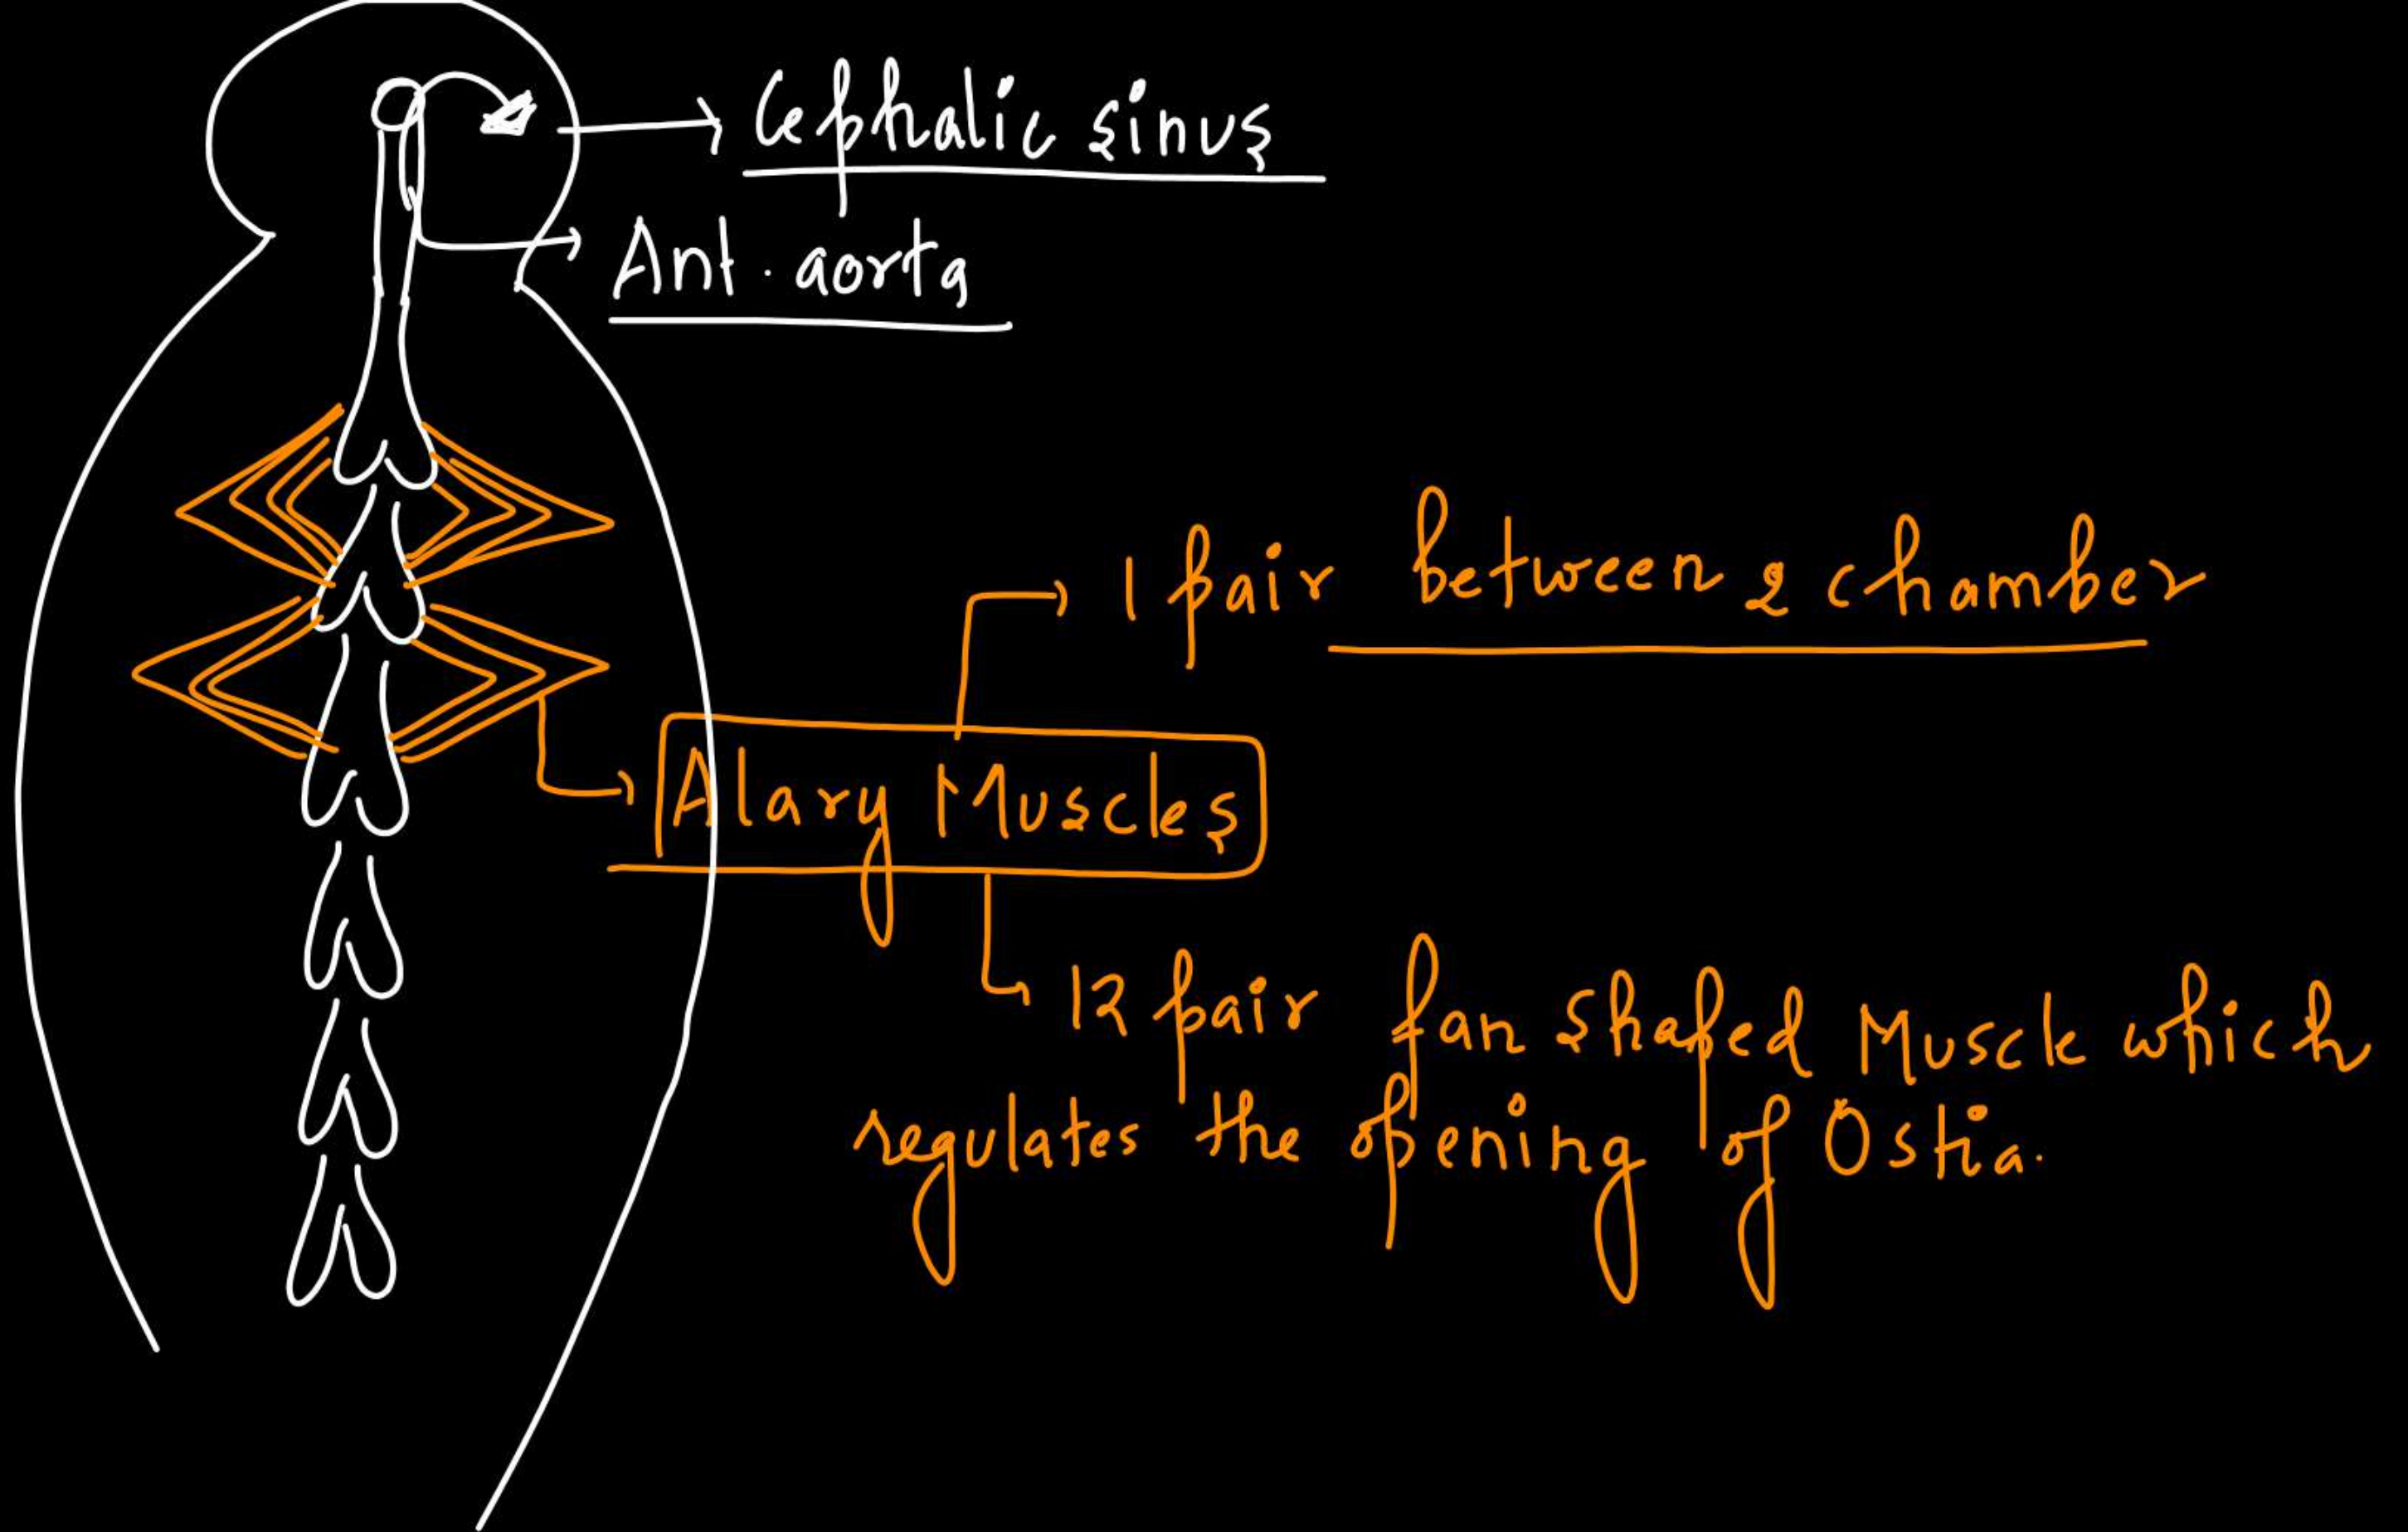 Cephalic sinus
Ant. aorta
1 pair between 2 chamber
Alary Muscles
12 pair fan shaped Muscle which
regulates the opening of Ostia.